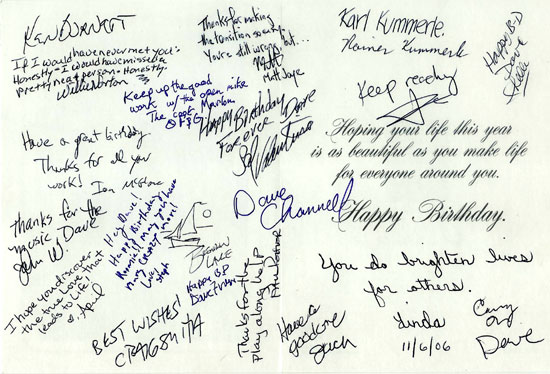 KEN BURNETT
If I would have never met you -
Honestly - I would have missed a
pretty great person. Honestly.
Willie Norton
Thanks for making
the transition so easy
You're still wrong, but...
Matt
Matt Jaye
Karl Kummerle
Kummerle
Happy B-D
Dave
Keep
Keep up the good
work w/ the open mike
The
Happy Birthday Dave
Forever
Sal
Hoping your life this year
is as beautiful as you make life
for everyone around you.
Happy Birthday.
Have a great birthday
Thanks for all you
work!
Ian
Hey Dave!
Happy Birthday
may you have
many more!
Love
Steph
Dave
Channell
Thanks for the
music, Dave
John W.
Brendan
LAKE
Happy B.D
Dave
I hope you discover
the true Love that
leads to Life!
April
BEST WISHES!
CRAIG SMITH
Thanks for the
play along help
Have a
good one
You do brighten lives
for others.
Linda
11/6/06
Carry
on,
Dave